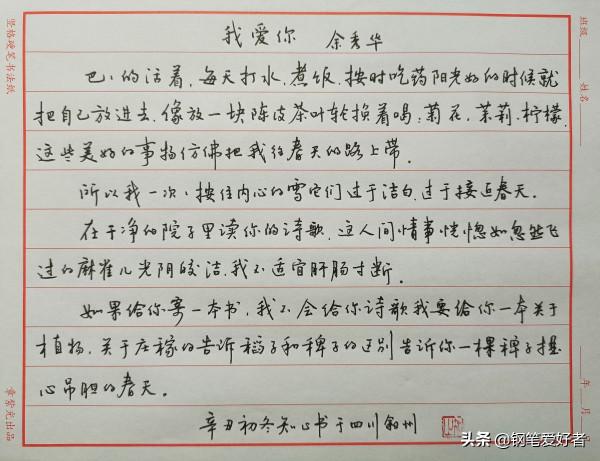 我爱你 余秀华
巴、的活着,每天打水,煮饭,按时吃药阳光好的时候就
把自己放进去,像放一块陈皮茶叶轮换着喝:菊花,茉莉,柠檬,
这些美好的事物仿佛把我往春天的路上带.
所以我一次、按住内心的雪它们过于洁白,过于接近春天.
在干净的院子里读你的诗歌,这人间情事恍惚如忽然飞
过的麻雀儿光阴皎洁,我不适宜肝肠寸断.
如果给你寄一本书,我不会给你诗歌我要给你一本关于
植物,关于庄稼的告诉稻子和稗子的区别告诉你一棵稗子提
心吊胆的春天.
辛丑初冬知书于四川叙州
竖格硬笔书法纸
章紫光出品
班级 姓名
年 月 日
头条 @钢笔爱好者